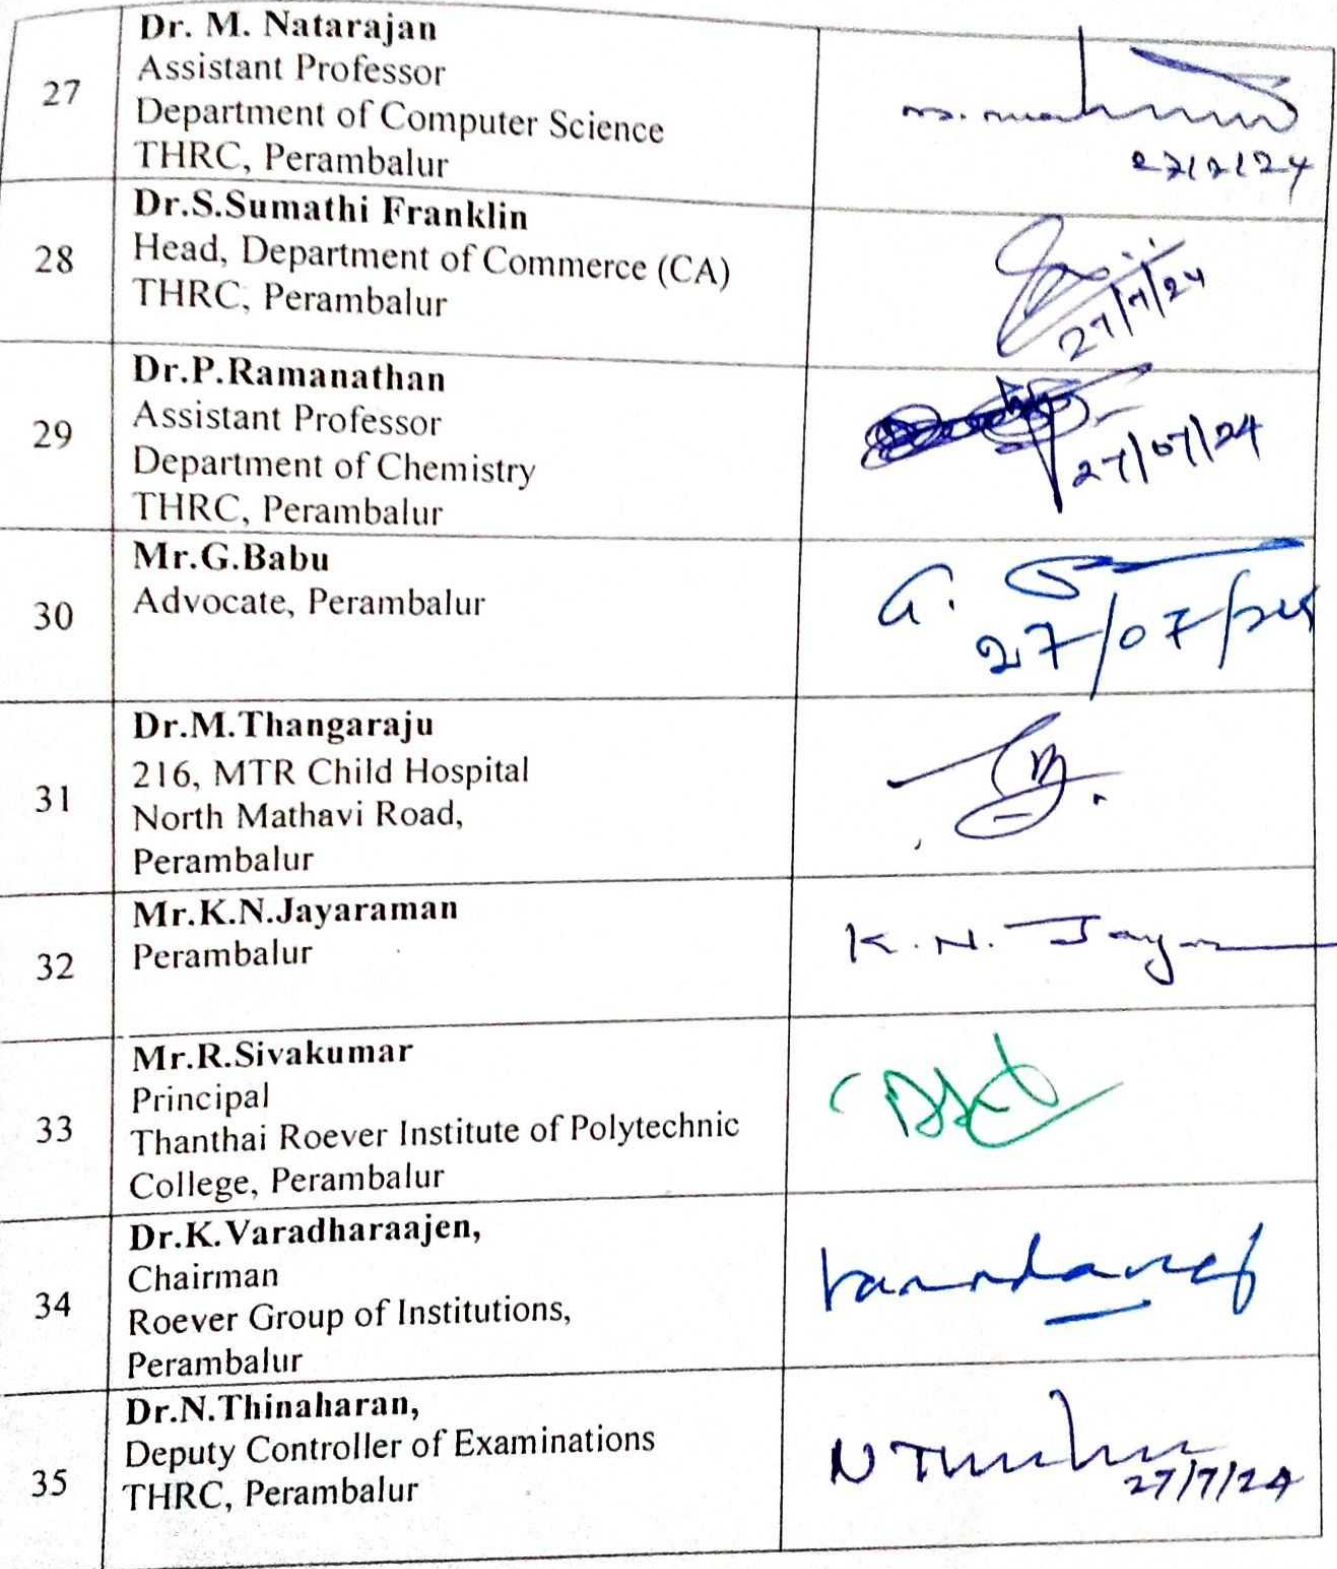 27
Dr. M. Natarajan
Assistant Professor
Department of Computer Science
THRC, Perambalur
27/7/24
28
Dr.S.Sumathi Franklin
Head, Department of Commerce (CA)
THRC, Perambalur
27/7/24
29
Dr.P.Ramanathan
Assistant Professor
Department of Chemistry
THRC, Perambalur
27/07/24
30
Mr.G.Babu
Advocate, Perambalur
G.
27/07/24
31
Dr.M.Thangaraju
216, MTR Child Hospital
North Mathavi Road,
Perambalur
32
Mr.K.N.Jayaraman
Perambalur
K.N.
33
Mr.R.Sivakumar
Principal
Thanthai Roever Institute of Polytechnic
College, Perambalur
34
Dr.K.Varadharaajen,
Chairman
Roever Group of Institutions,
Perambalur
35
Dr.N.Thinaharan,
Deputy Controller of Examinations
THRC, Perambalur
N
27/7/24